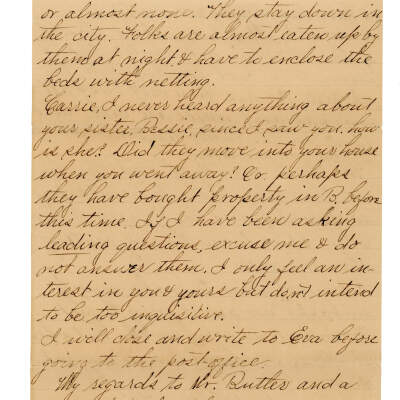 or almost none. They stay down in
the city. Folks are almost eaten up by
them at night & have to enclose the
beds with netting.
Carrie, I never heard anything about
your sister, Bessie, since I saw you, how
is she? Did they move into your house
when you went away? Or perhaps
they have bought property in B. before
this time. If I have been asking
leading questions, excuse me & do
not answer them. I only feel an in-
terest in you & yours but don't intend
to be too inquisitive.
I will close and write to Eva before
going to the post-office.
My regards to Mr. Butler and a